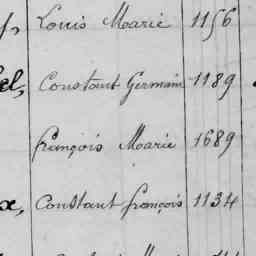 Louis Marie 1156
el, Constant Germain 1189
François Marie 1689
x, Constant François 1134